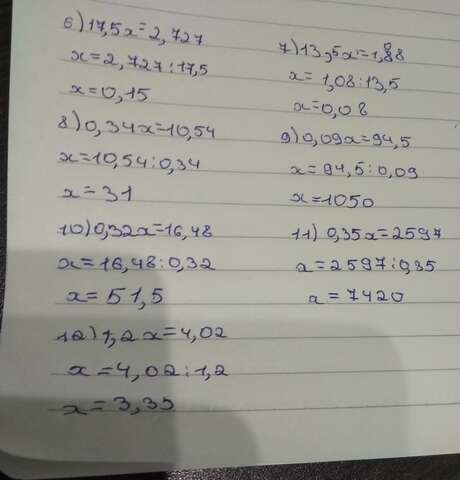 6) 17,5x=2,727
x=2,727:17,5
x=0,15
7) 13,5x=1,08
x=1,08:13,5
x=0,08
8) 0,34x=10,54
x=10,54:0,34
x=31
9) 0,09x=94,5
x=94,5:0,09
x=1050
10) 0,32x=16,48
x=16,48:0,32
x=51,5
11) 0,35x=2597
x=2597:0,35
x=7420
12) 1,2x=4,02
x=4,02:1,2
x=3,35